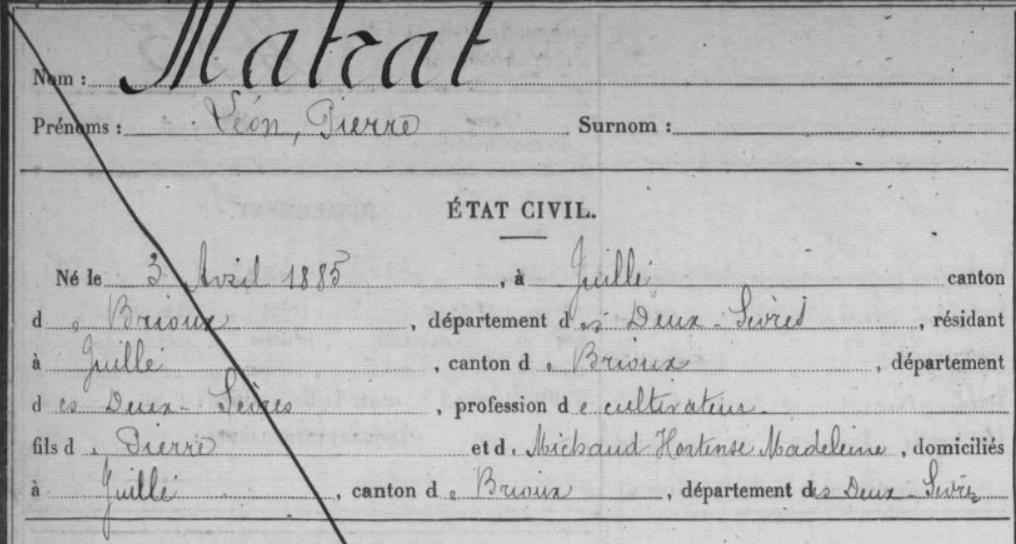 Nom : Matrat
Prénoms : Léon, Pierre Surnom :
ÉTAT CIVIL.
Né le 3 Avril 1885, à Juillé canton
de Brioux, département des Deux-Sèvres, résidant
à Juillé, canton de Brioux, département
des Deux-Sèvres, profession de cultivateur
fils de Pierre et de Michaud Hortense Madeleine, domiciliés
à Juillé, canton de Brioux, département des Deux-Sèvres